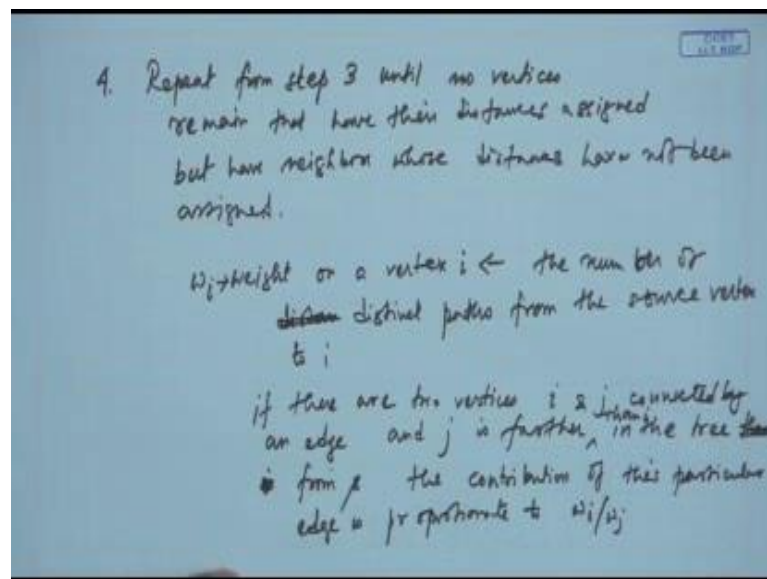 CCET
I.I.T. KGP
4. Repeat from step 3 until no vertices
remain that have their distances assigned
but have neighbors whose distances have not been
assigned.
wi → weight on a vertex i ← the number of
distinct paths from the source vertex
to i
if there are two vertices i & j connected by
an edge and j is further than in the tree
i from s the contribution of this particular
edge is proportionate to wi/wj